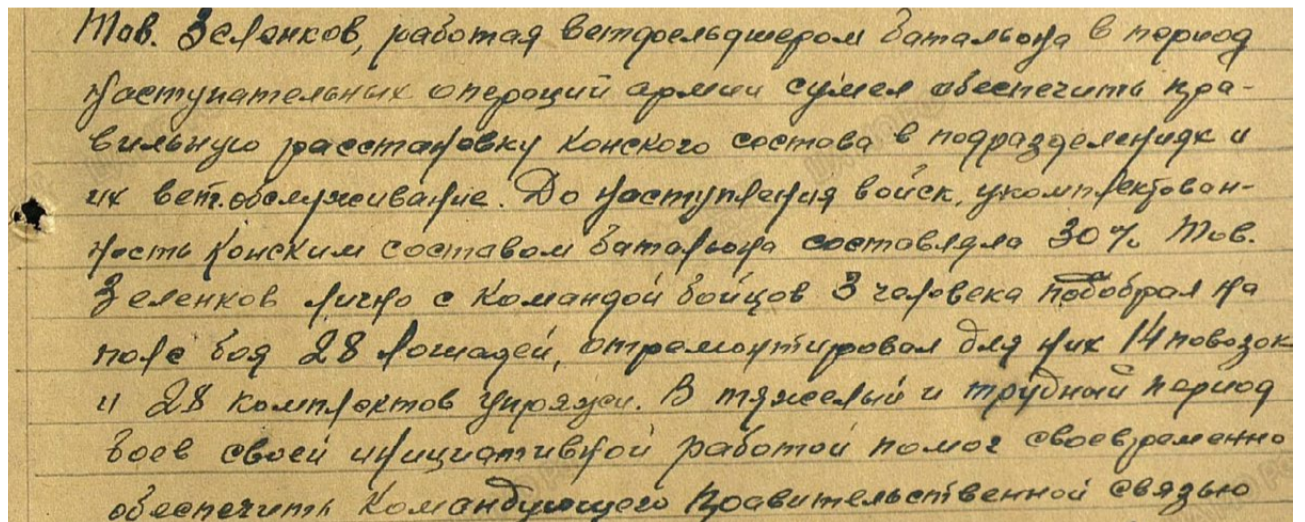 Тов. Зеленков, работая ветфельдшером батальона в период
наступательных операций армии сумел обеспечить пра-
вильную расстановку конского состова в подразделениях и
их вет.обслуживание. До наступления войск, укомплектован-
ность конским составом батальона состовляла 30% Тов.
Зеленков лично с командой бойцов 3 человека подобрал на
поле боя 28 лошадей, отремонтировал для них 14 повозок
и 28 комплектов упряжи. В тяжелый и трудный период
боев своей инициативной работой помог своевременно
обеспечить Командующего правительственной связью